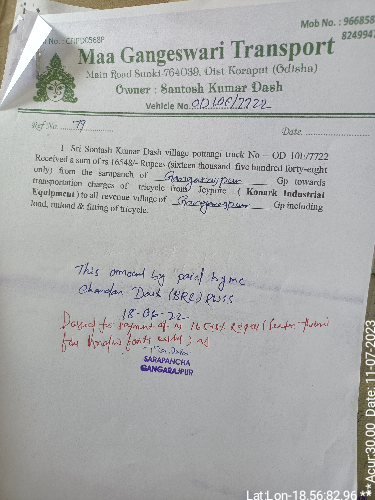 Mob No.: 966858
824994
No.: CRPD0568P
Maa Gangeswari Transport
Main Road Sunki-764039, Dist Koraput (Odisha)
Owner : Santosh Kumar Dash
Vehicle No. OD10L/7722
Ref No. 79
Date
I Sri Santosh Kumar Dash village pottangi truck No – OD 10L/7722
Received a sum of rs 16548/- Rupees (sixteen thousand five hundred forty-eight
only) from the sarapanch of Gangarajpur Gp towards
transportation charges of tricycle from Jeypore ( Konark Industrial
Equipment ) to all revenue village of Gangarajpur Gp including
load, unload & fitting of tricycle.
This amount by paid by me
Chandan Dash (BRC)
18-06-22
Passed for payment of rs
SARAPANCHA
GANGARAJPUR
Lat:Lon-18.56:82.96 **Acur:30.00 Date: 11-07-2023